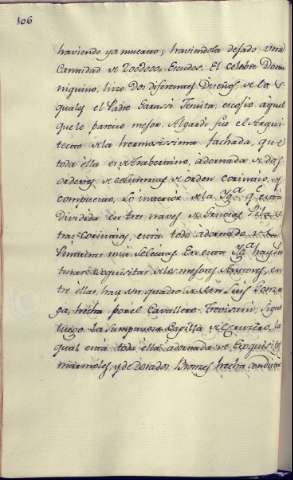 106
haviendo ya muerto; haviendola dejado una
Cantidad de 200000 Escudos. El celebre Dome
niquino, hizo Dos diferentes Diseños de los
quales el Padre Grassi Jesuita, escojio aquel
que le parecio mejor. Algardi fue el Arqui
tecto de la hermosissima fachada, que
toda ella es de Trabertino, adornada de dos
ordenes de columnas de orden corintio, y
compuesto, Lo interior de la Yga. qe. está
Dividida en tres naves de Pilas
tras Corintias, está todo adornado de
muy Selectas. En esta Yga. hay
de los mejores Autores, en
tre ellas hay un quadro de San Luis Gonza
ga, hecho por el Cavallero Trevisani, sigue
luego La sumptuosa Capilla
qual está toda ella adornada de Exquisitos
marmoles, y de dorados Bronzes hecha